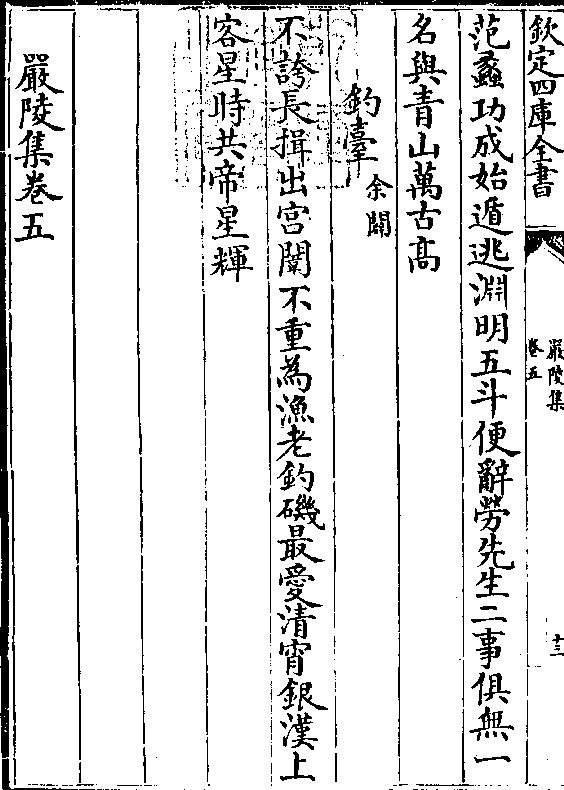 欽定四庫全書
嚴陵集
卷五
十三
范蠡功成始遁逃淵明五斗便辭勞先生二事俱無一
名與青山萬古高
釣臺
余闢
不誇長揖出宮闈不重為漁老釣磯最愛清宵銀漢上
客星時共帝星輝
嚴陵集卷五